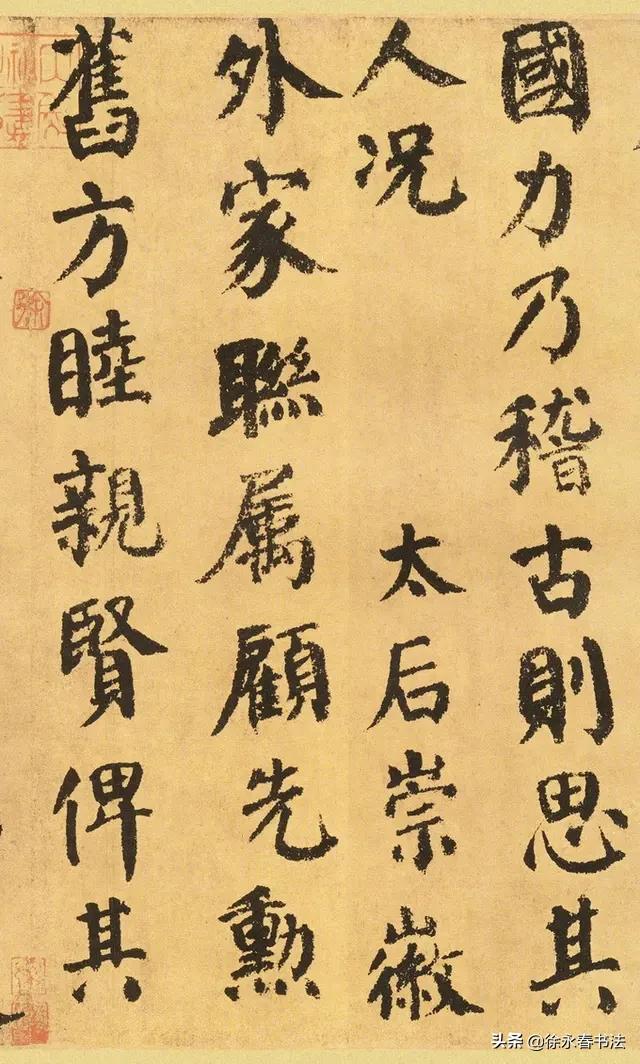 國力乃稽古則思其
人况太后崇徽
外家聯属顧先勲
舊方睦親賢俾其
头条 @徐永春书法